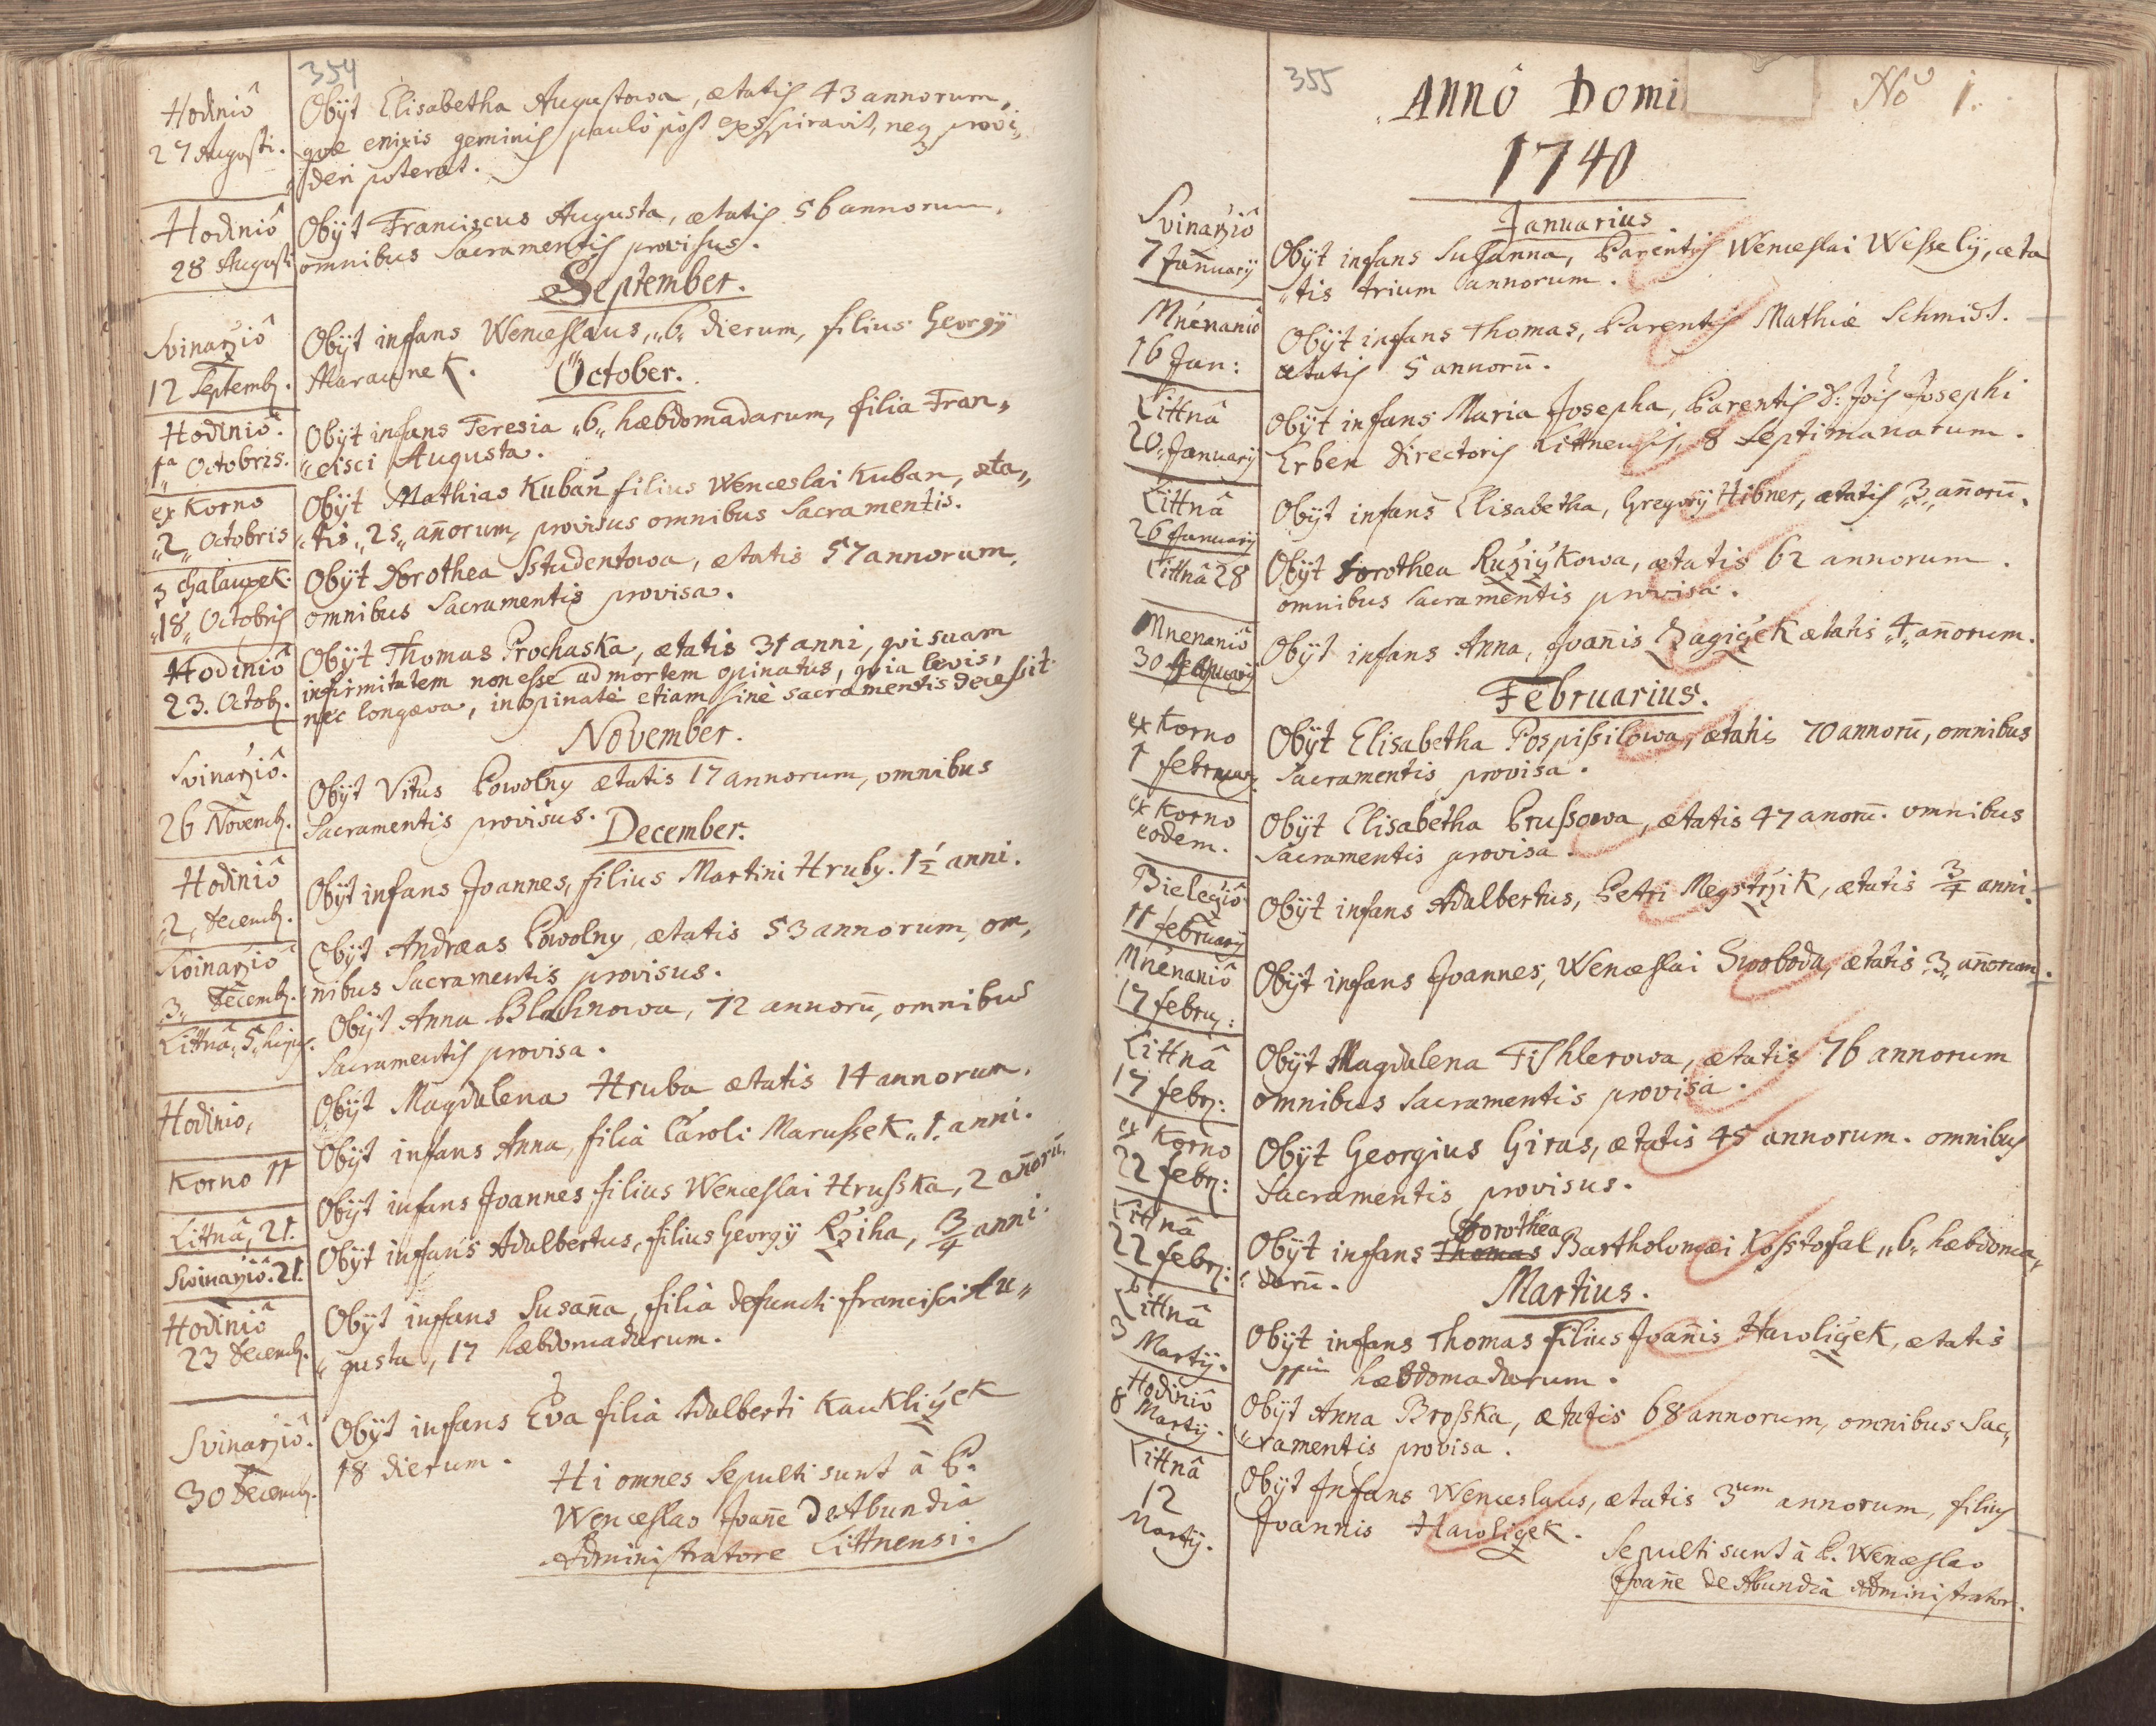 354
Hodiniô
27 Augusti.
Obÿt Elisabetha Augustowa, ætatis 43 annorum,
qvæ enixis geminis paulò pòst exspiravit, neq provi„
„deri poterat.
Hodiniô
28 Augusti
Obÿt Franciscus Augusta, ætatis 56 annorum,
omnibus Sacramentis provisus.
September.
Svinarziô
12 Septemb.
Obÿt infans Wenceslaus, „6„ dierum, filius Georgÿ
Maraunek.
October.
Hodiniô.
1ª Octobris.
Obÿt infans Teresia „6„ hæbdomadarum, filia Fran„
„cisci Augusta.
ex Korno
„2„ Octobris
Obÿt Mathias Kuban filius Wenceslai Kuban, æta„
„tis „25„ añorum, provisus omnibus Sacramentis.
3 Chalaupek.
„18„ Octobris
Obÿt Dorothea Studentowa, ætatis 57 annorum,
omnibus Sacramentis provisa.
Hodiniô
23. Octob.
Obÿt Thomas Prochaska, ætatis 31 anni, qvi suam
infirmitatem non esse ad mortem opinatus, qvia levis,
nec longæva, inopinatè etiam sinè sacramentis decessit.
November.
Svinarziô.
26 Novemb.
Obÿt Vitus Powolny ætatis 17 annorum, omnibus
Sacramentis provisus.
December.
Hodiniô
„2„ Decemb.
Obÿt infans Joannes, filius Martini Hruby. 1½ anni.
Svinarziô
„3„ Decemb.
Obÿt Andræas Powolny, ætatis 53 annorum, om„
„nibus Sacramentis provisus.
Littnâ, 5, hujus.
Obÿt Anna Blahnowa, 72 annorū, omnibus
Sacramentis provisa.
Hodinio,
Obÿt Magdalena Hruba ætatis 14 annorum.
Korno 11
Obÿt infans Anna, filia Caroli Marussek „1„ anni.
Littnâ, 21.
Obÿt infans Joannes filius Wenceslai Hrusska, 2 añorū.
Svinarziô. 21.
Obÿt infans Adalbertus, filius Georgÿ Rziha, ¾ anni.
Hodiniô
23 Decemb.
Obÿt infans Susaña, filia defuncti Francisci Au„
„gusta, 17 hæbdomadarum.
Svinarziô.
30 Decemb.
Obÿt infans Eva filia Adalberti Kaukliczek
18 dierum.
Hi omnes Sepulti sunt à P.
Wenceslao Joañe De Abundia
Administratore Littnensi.
355
Annô Domi
Nô 1.
1740
Januarius.
Svinarziô
7 Januarÿ
Obÿt infans Susanna, Parentis Wenceslai Wessely, æta
„tis trium annorum.
Mněnaniô
16 Jan:
Obÿt infans Thomas, Parentis Mathiæ Schmidt.
ætatis 5 annorū.
Littnâ
20 Januarÿ
Obÿt infans Maria Josepha, Parentis D: Jõis Josephi
Erben Directoris Littnensis, 8 Septimanarum.
Littnâ
26 Januarÿ
Obÿt infans Elisabetha, Gregorÿ Hibner, ætatis „3„ añorū.
Littnâ 28
Obÿt Dorothea Ruziczkowa, ætatis 62 annorum.
omnibus Sacramentis provisa.
Mnenaniô
30 Januarÿ
Obÿt infans Anna, Joañis Zagiczek ætatis „4„ añorum.
Februarius.
ex Korno
1 februarÿ
Obÿt Elisabetha Pospissilowa, ætatis 70 annorū, omnibus
Sacramentis provisa.
ex Korno
eodem.
Obÿt Elisabetha Prussowa, ætatis 47 anorū. omnibus
Sacramentis provisa.
Bielegiô
11 februarÿ
Obÿt infans Adalbertus, Petri Megstrzik, ætatis ¾ anni.
Mněnaniô
17 febru:
Obÿt infans Joannes, Wenceslai Swoboda, ætatis „3„ añorum.
Littnâ
17 febr:
Obÿt Magdalena Fishlerowa, ætatis 76 annorum
omnibus Sacramentis provisa.
ex Korno
22 febr:
Obÿt Georgius Giras, ætatis 45 annorum. omnibus
Sacramentis provisus.
Littnâ
22 febr:
Dorothea
Obÿt infans Thomas Bartholomæi Kosstofal „6„ hæbdoma„
„darū.
Martius.
Littnâ
3
Martÿ.
Obÿt infans Thomas filius Joañis Hawliczek, ætatis
hæbdomadarum.
Hodiniô
8 Martÿ.
Obÿt Anna Brosska, ætatis 68 annorum, omnibus Sac„
„ramentis provisa.
Littnâ
12
Martÿ.
Obÿt Infans Wenceslaus, ætatis 3um annorum, filius
Joannis Hawliczek.
Sepulti sunt à P. Wenceslao
Joañe De Abundia Administrator.